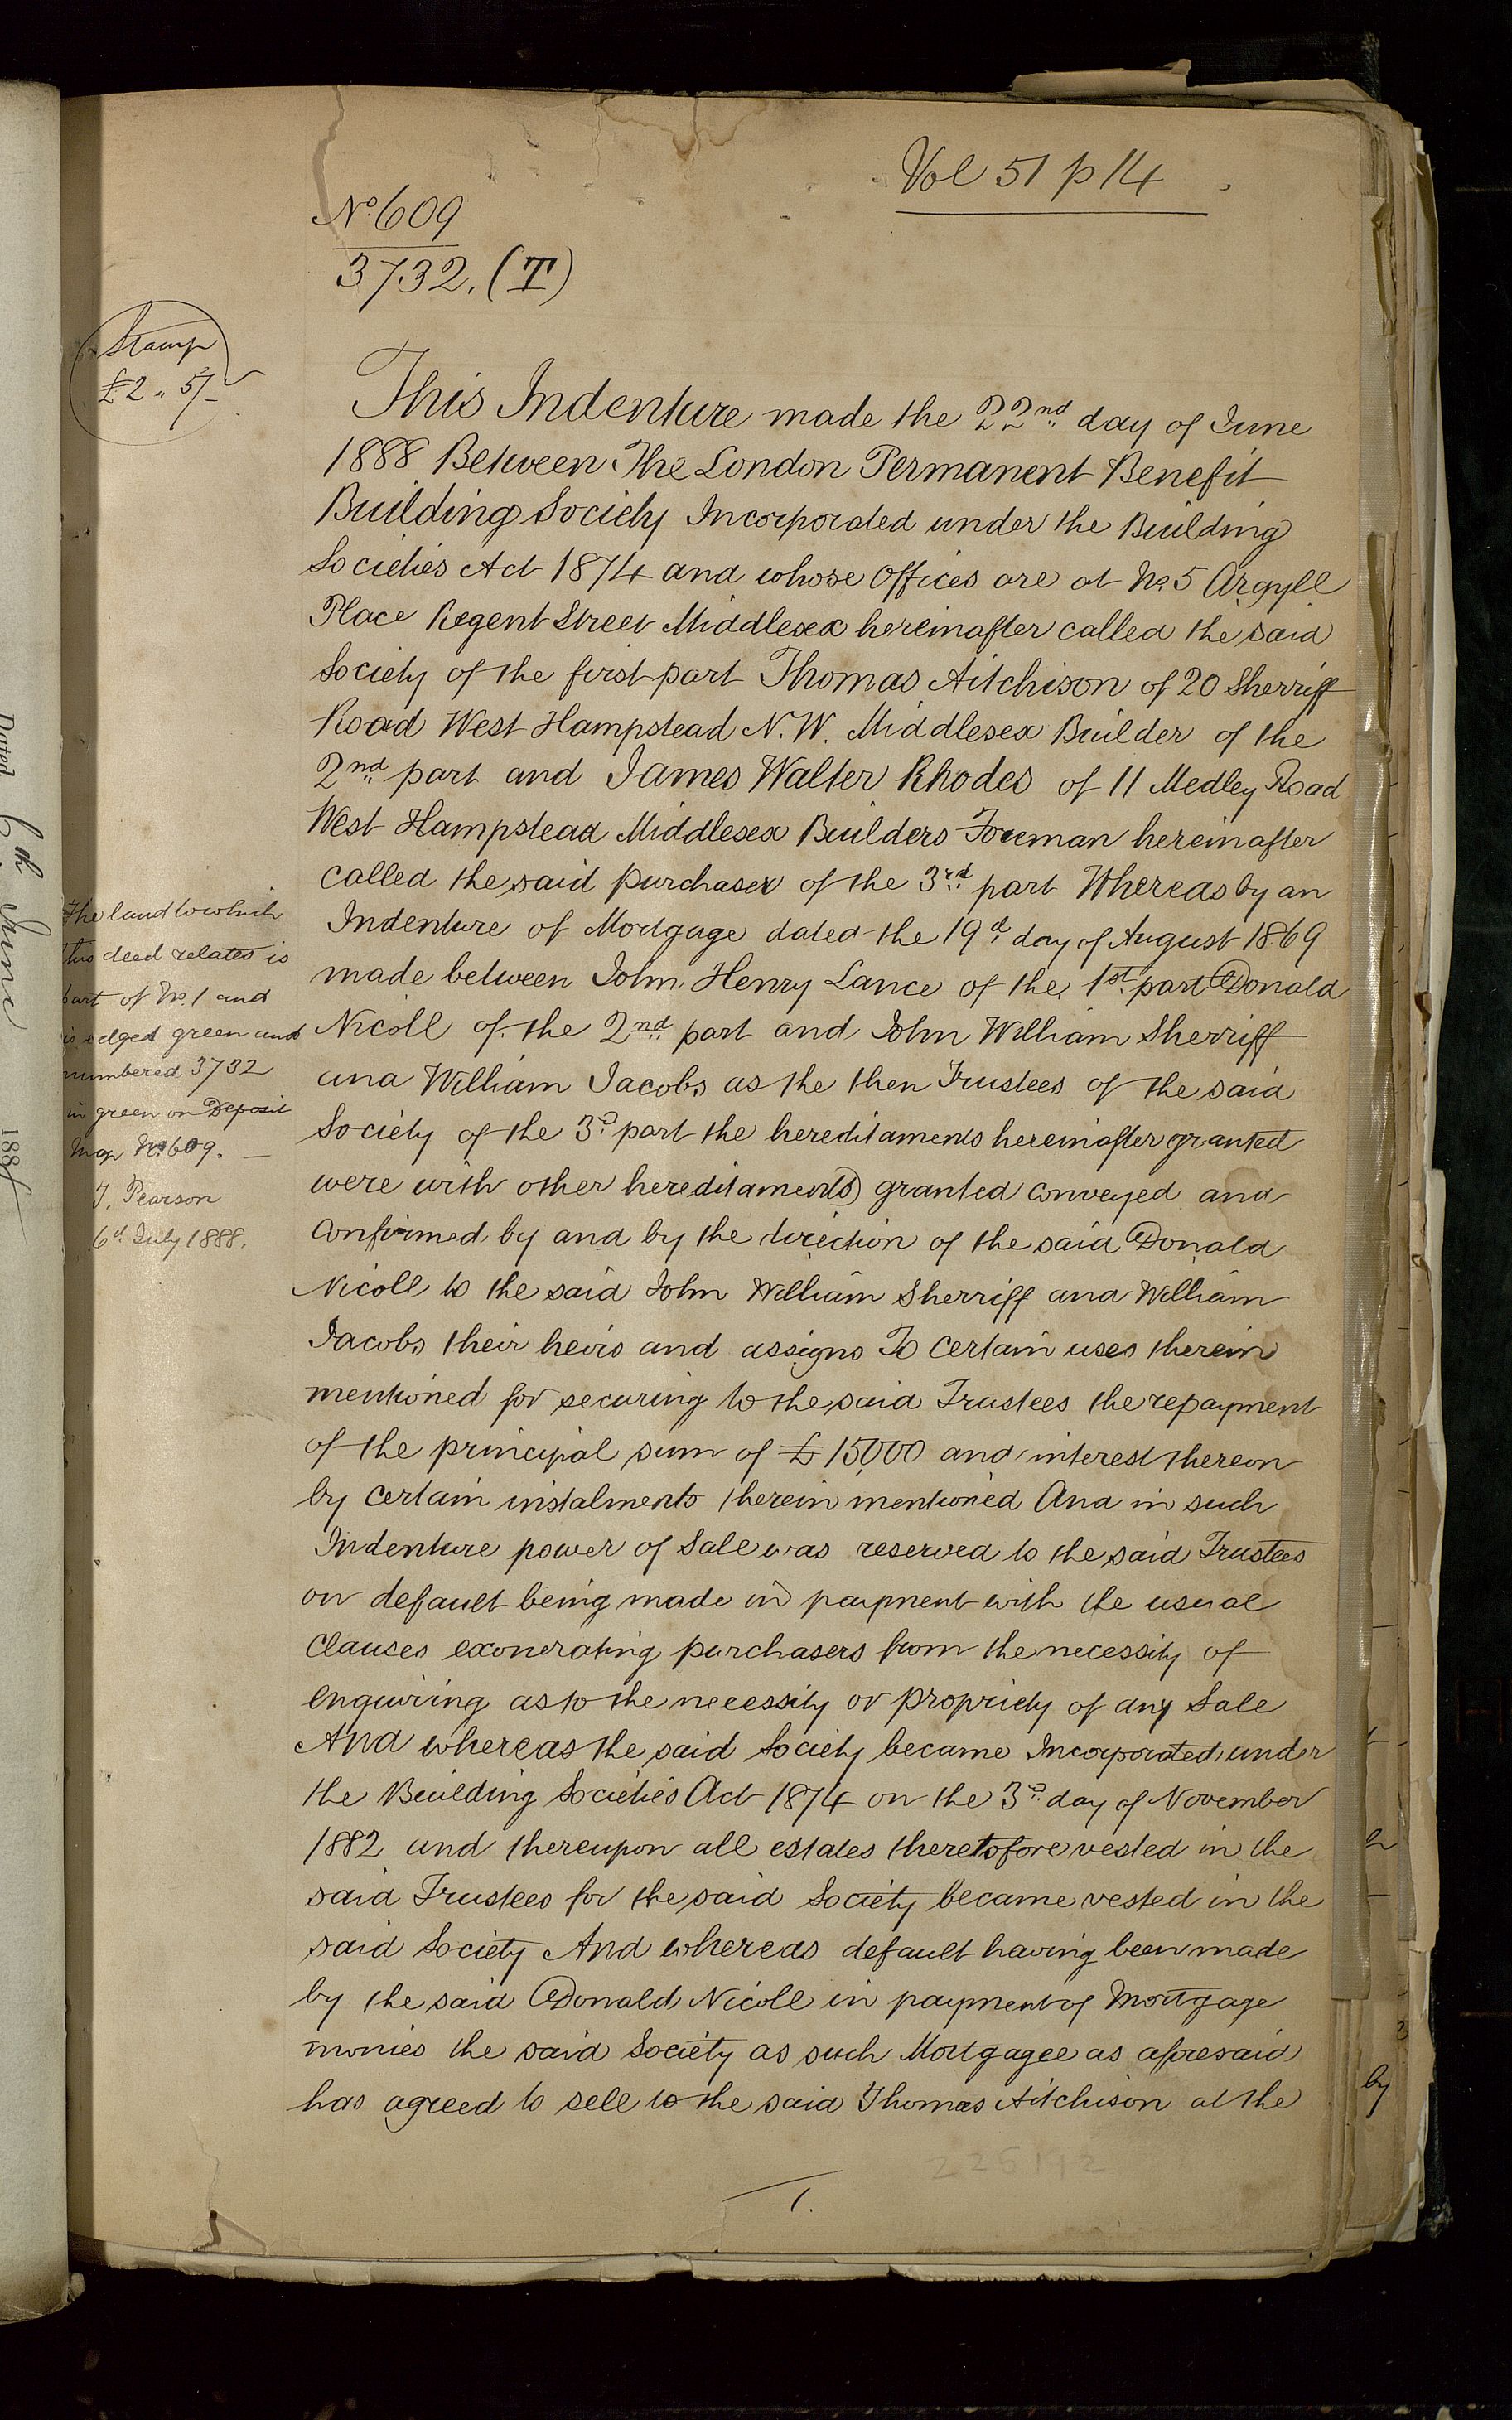 Vol 51 p 14
No. 609
3732. (T)
Stamp
£2 " 5/-
This Indenture made the 22nd day of June
1888 Between The London Permanent Benefit
Building Society Incorporated under the Building
Societies Act 1874 and whose Offices are at No. 5 Argyll
Place Regent Street Middlesex hereinafter called the said
Society of the first part Thomas Aitchison of 20 Sherriff
Road West Hampstead N.W. Middlesex Builder of the
2nd part and James Walter Rhodes of 11 Medley Road
West Hampstead Middlesex Builders Foreman hereinafter
called the said purchaser of the 3rd part Whereas by an
Indenture of Mortgage dated the 19th day of August 1869
made between John Henry Lance of the 1st part Donald
Nicoll of the 2nd part and John William Sherriff
and William Jacobs as the then Trustees of the said
Society of the 3rd part the hereditaments hereinafter granted
were with other hereditaments granted conveyed and
confirmed by and by the direction of the said Donald
Nicoll to the said John William Sherriff and William
Jacobs their heirs and assigns To certain uses therein
mentioned for securing to the said Trustees the repayment
of the principal sum of £15,000 and interest thereon
by certain instalments therein mentioned And in such
Indenture power of Sale was reserved to the said Trustees
on default being made in payment with the usual
clauses exonerating purchasers from the necessity of
enquiring as to the necessity or propriety of any Sale
And whereas the said Society became Incorporated under
the Building Societies Act 1874 on the 3rd day of November
1882 and thereupon all estates theretofore vested in the
said Trustees for the said Society became vested in the
said Society And whereas default having been made
by the said Donald Nicoll in payment of Mortgage
monies the said Society as such Mortgagee as aforesaid
has agreed to sell to the said Thomas Aitchison at the
1.
225112
The land to which
this deed relates is
part of No. 1 and
is edged green and
numbered 3732
in green on Deposit
Map No. 609.
T. Pearson
6th July 1888.
Dated 6th June 188
by